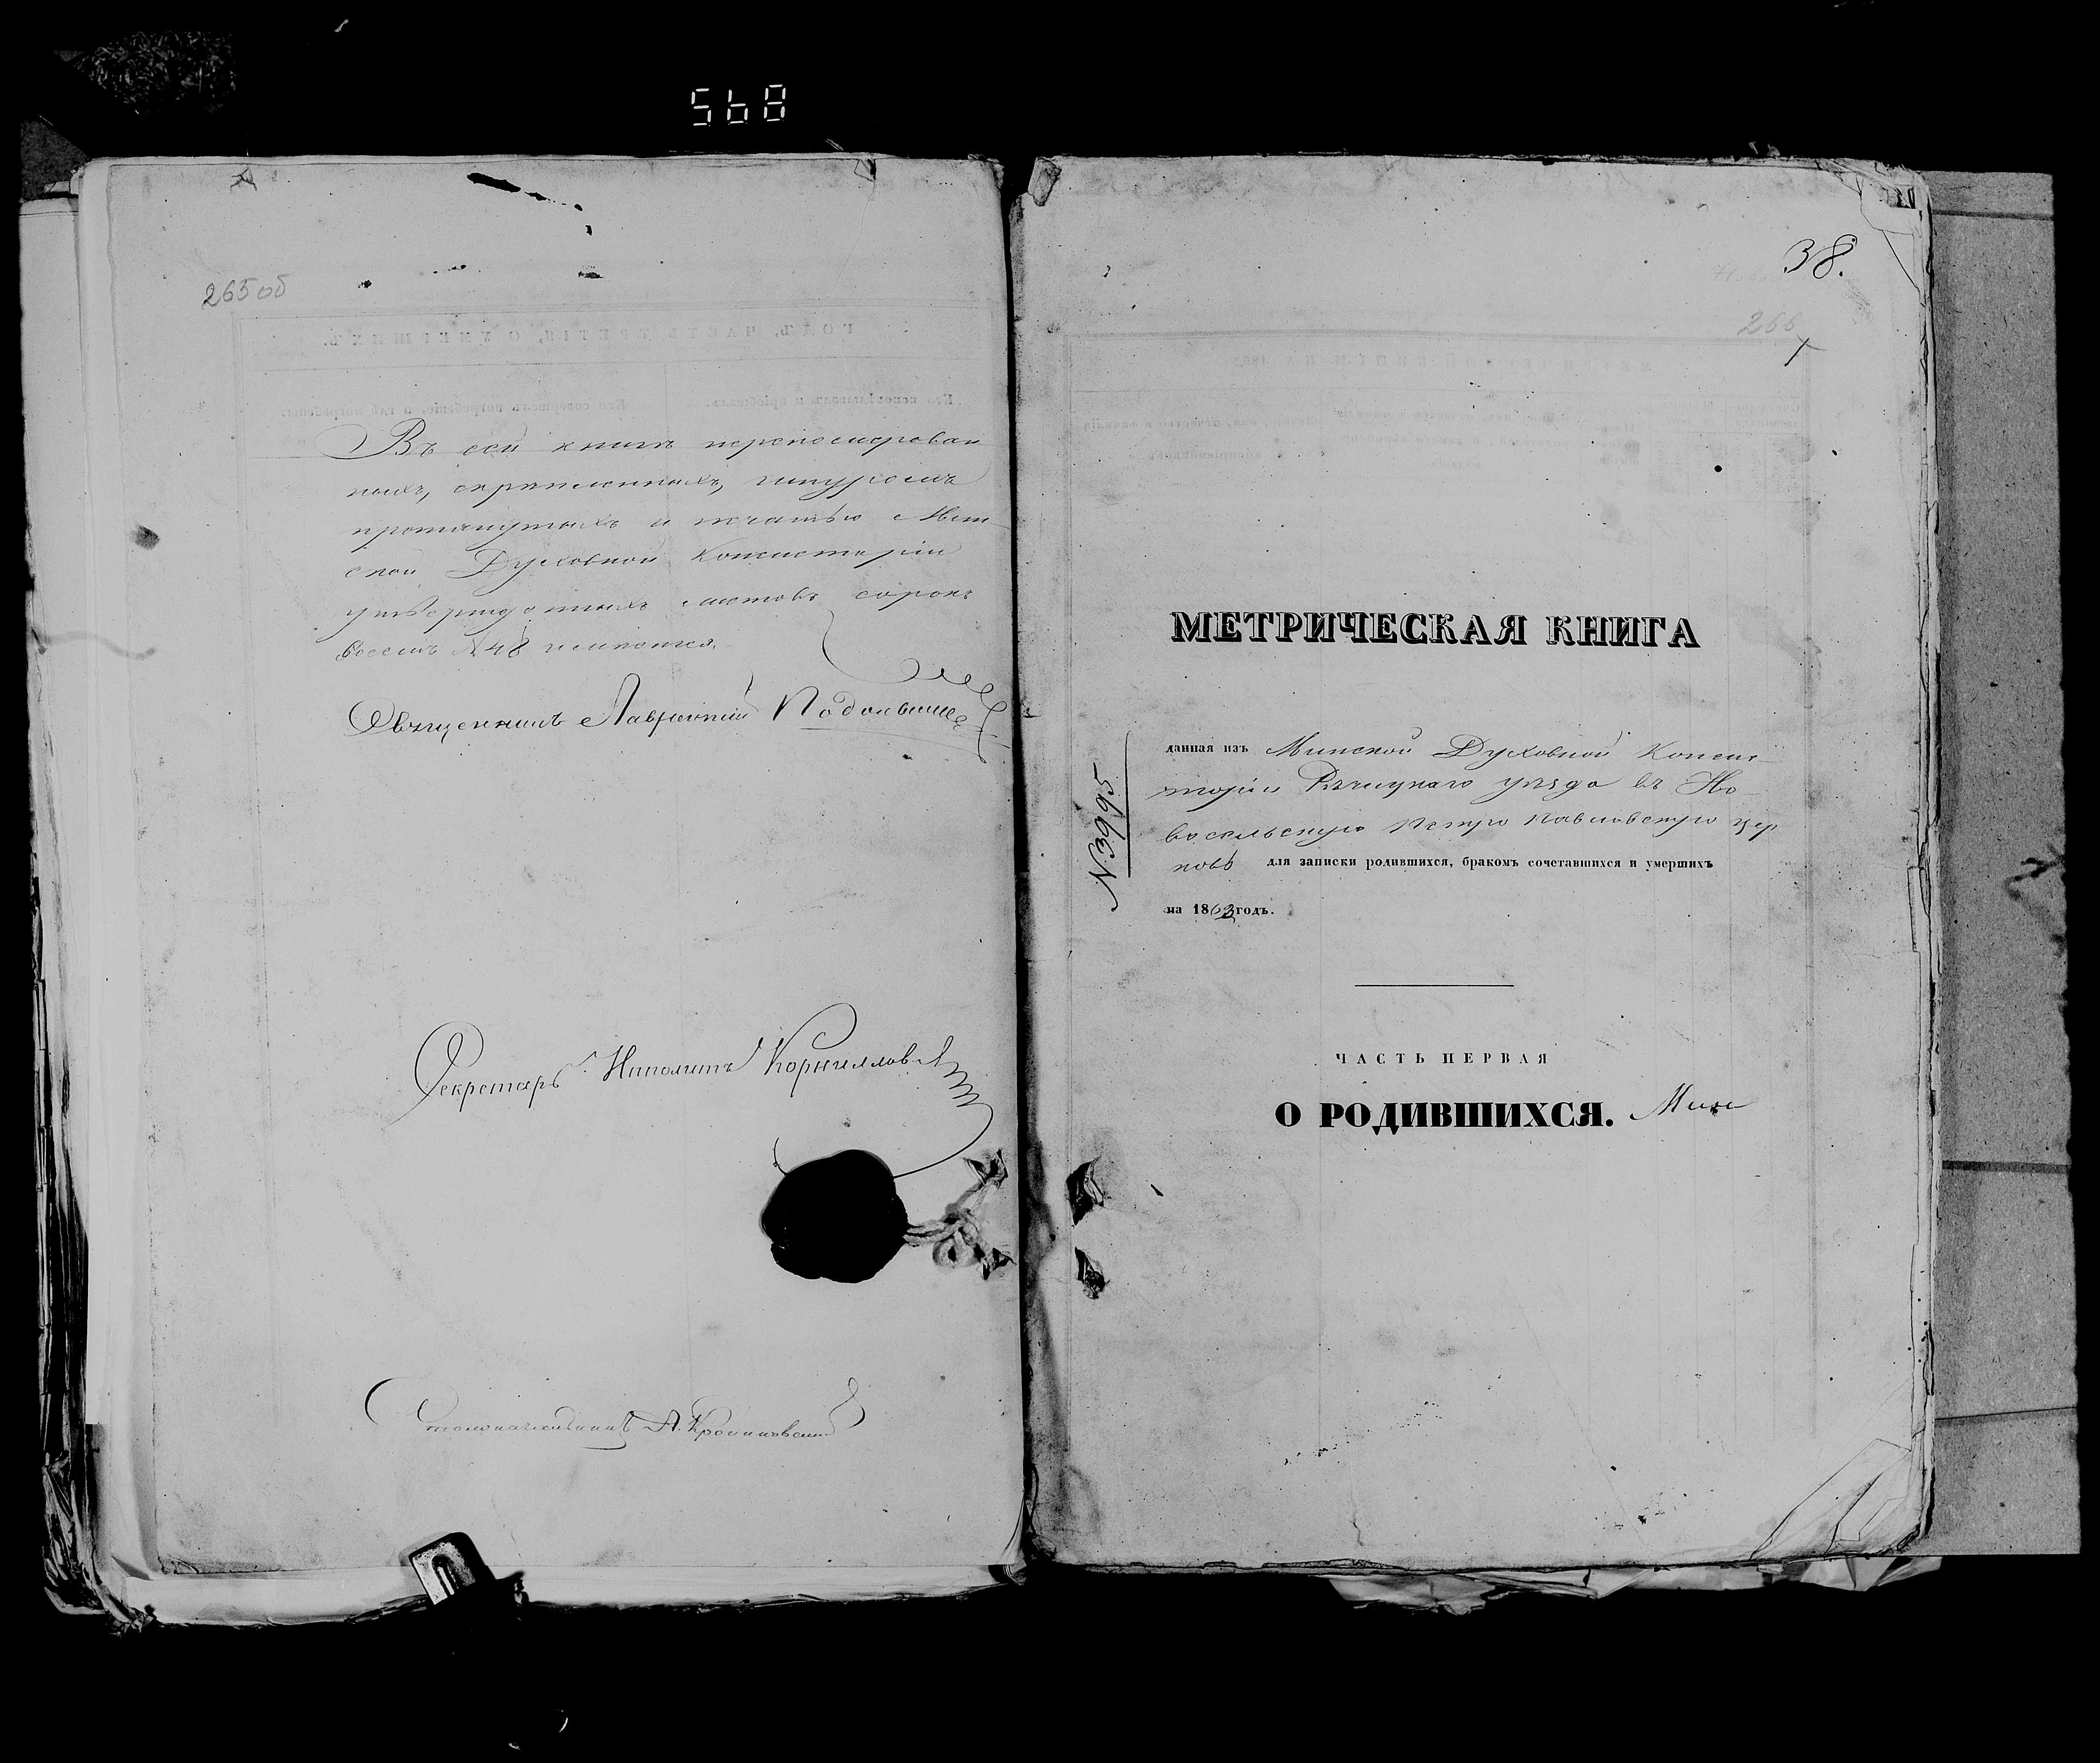 568
265 об
Въ сей книгѣ перенумерован
ныхъ, скрѣпленныхъ, шнуромъ
протянутыхъ и печатью Мин
ской Духовной Консисторіи
утвержденныхъ листовъ сорокъ
восемь N 48 имѣется.
Священникъ Лаврентій
Секретарь Иполитъ Корниловичъ
Столоначальникъ А.
38.
266
МЕТРИЧЕСКАЯ КНИГА
N. 3995
данная изъ Минской Духовной Консис-
торіи Рѣчицкаго уѣзда въ Но-
восельскую Петро Павловскую цер
ковь для записки родившихся, бракомъ сочетавшихся и умершихъ
на 1863 годъ.
ЧАСТЬ ПЕРВАЯ
О РОДИВШИХСЯ.